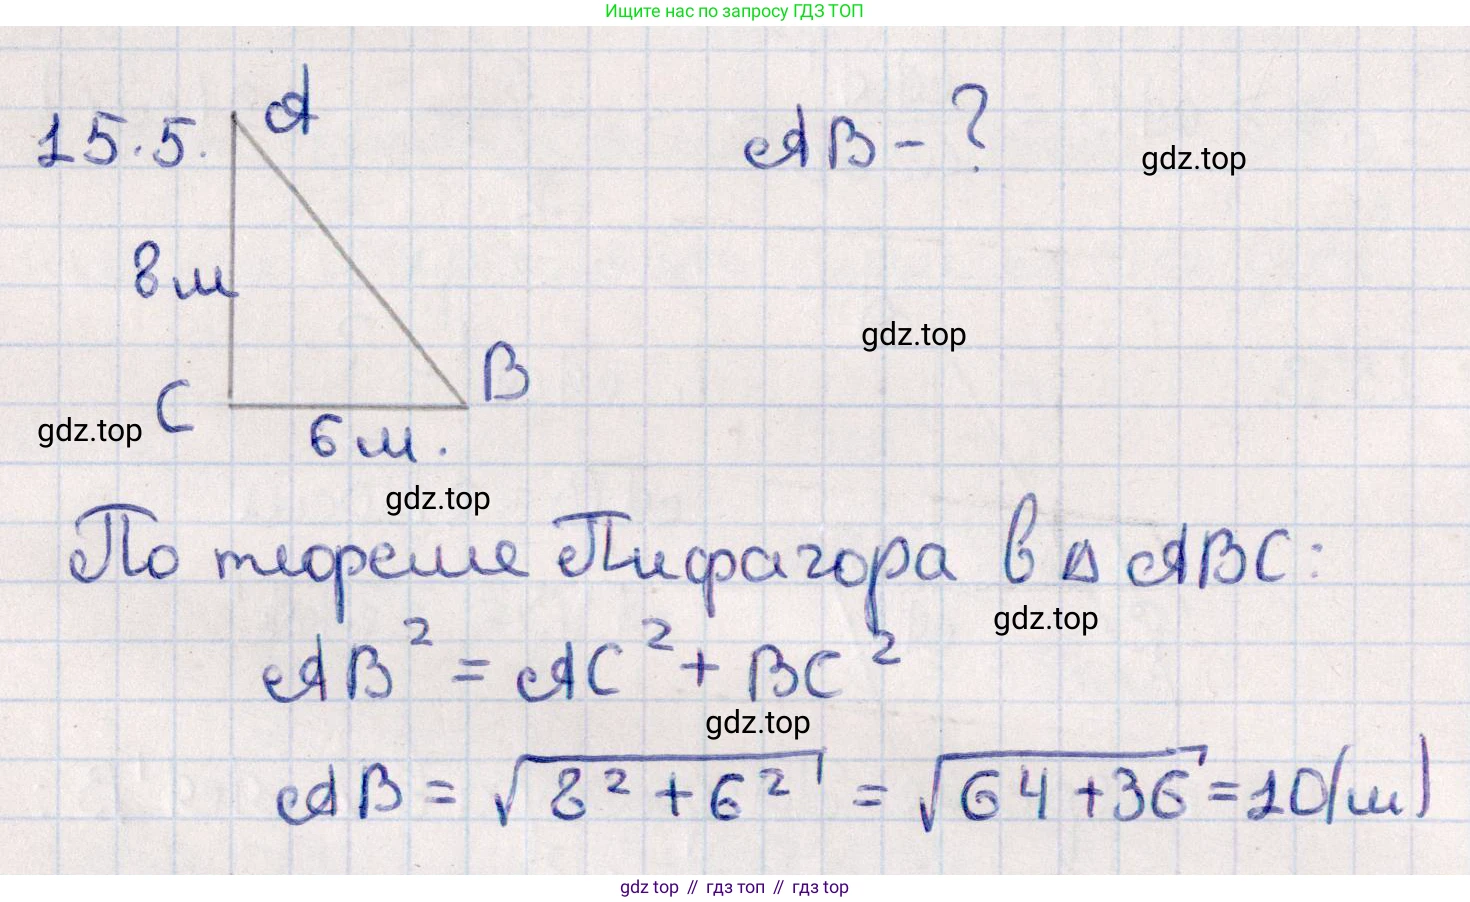 Ищите нас по запросу ГДЗ ТОП
15.5.
A
AB - ?
gdz.top
8 м
gdz.top
B
C
gdz.top
6 м.
gdz.top
По теореме Пифагора в △ ABC:
gdz.top
AB² = AC² + BC²
gdz.top
AB = √8² + 6² = √64 + 36 = 10(м)
gdz top // гдз топ // гдз top